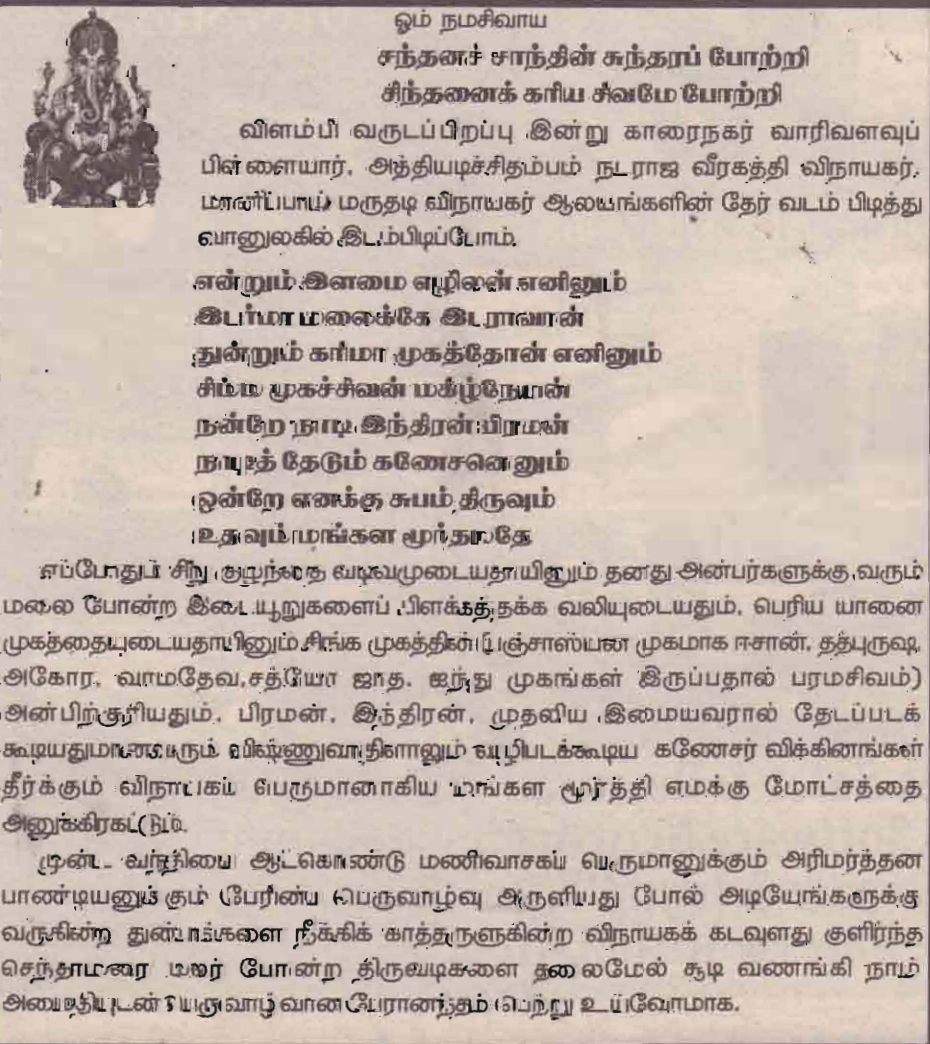 ஓம் நமசிவாய
சந்தனச் சாந்தின் சுந்தரப் போற்றி
சிந்தனைக் கரிய சிவமே போற்றி
விளம்பி வருடப்பிறப்பு இன்று காரைநகர் வாரிவளவுப்
பிள்ளையார், அத்தியடிச்சிதம்பம் நடராஜ வீரகத்தி விநாயகர்,
மானிப்பாய் மருதடி விநாயகர் ஆலயங்களின் தேர் வடம் பிடித்து
வானுலகில் இடம்பிடிப்போம்.
என்றும் இளமை எழிலன் எனினும்
இடர்மா மலைக்கே இடராவான்
துன்றும் கரிமா முகத்தோன் எனினும்
சிம்ம முகச்சிவன் மகிழ்நேயன்
நன்றே நாடி இந்திரன் பிரமன்
நாடித் தேடும் கணேசனெனும்
ஒன்றே எனக்கு சுபம் திருவும்
உதவும் மங்கள மூர்த்தமதே
எப்போதும் சிறு குழந்தை வடிவமுடையதாயினும் தனது அன்பர்களுக்கு வரும்
மலை போன்ற இடையூறுகளைப் பிளக்கத்தக்க வலியுடையதும், பெரிய யானை
முகத்தையுடையதாயினும் சிங்க முகத்தின் (பஞ்சாஸ்யன முகமாக ஈசான், தத்புருஷ,
அகோர, வாமதேவ,சத்யோ ஜாத, ஐந்து முகங்கள் இருப்பதால் பரமசிவம்)
அன்பிற்குரியதும், பிரமன், இந்திரன், முதலிய இமையவரால் தேடப்படக்
கூடியதுமானவரும் விஷ்ணுவாதிகளாலும் வழிபடக்கூடிய கணேசர் விக்கினங்கள்
தீர்க்கும் விநாயகப் பெருமானாகிய மங்கள மூர்த்தி எமக்கு மோட்சத்தை
அனுக்கிரகட்டும்.
முன்ட வந்தியை ஆட்கொண்டு மணிவாசகப் பெருமானுக்கும் அரிமர்த்தன
பாண்டியனுக்கும் பேரின்ப பெருவாழ்வு அருளியது போல் அடியேங்களுக்கு
வருகின்ற துன்பங்களை நீக்கிக் காத்தருளுகின்ற விநாயகக் கடவுளது குளிர்ந்த
செந்தாமரை மலர் போன்ற திருவடிகளை தலைமேல் சூடி வணங்கி நாம்
அமைதியுடன் பெருவாழ்வான பேரானந்தம் பெற்று உய்வோமாக.